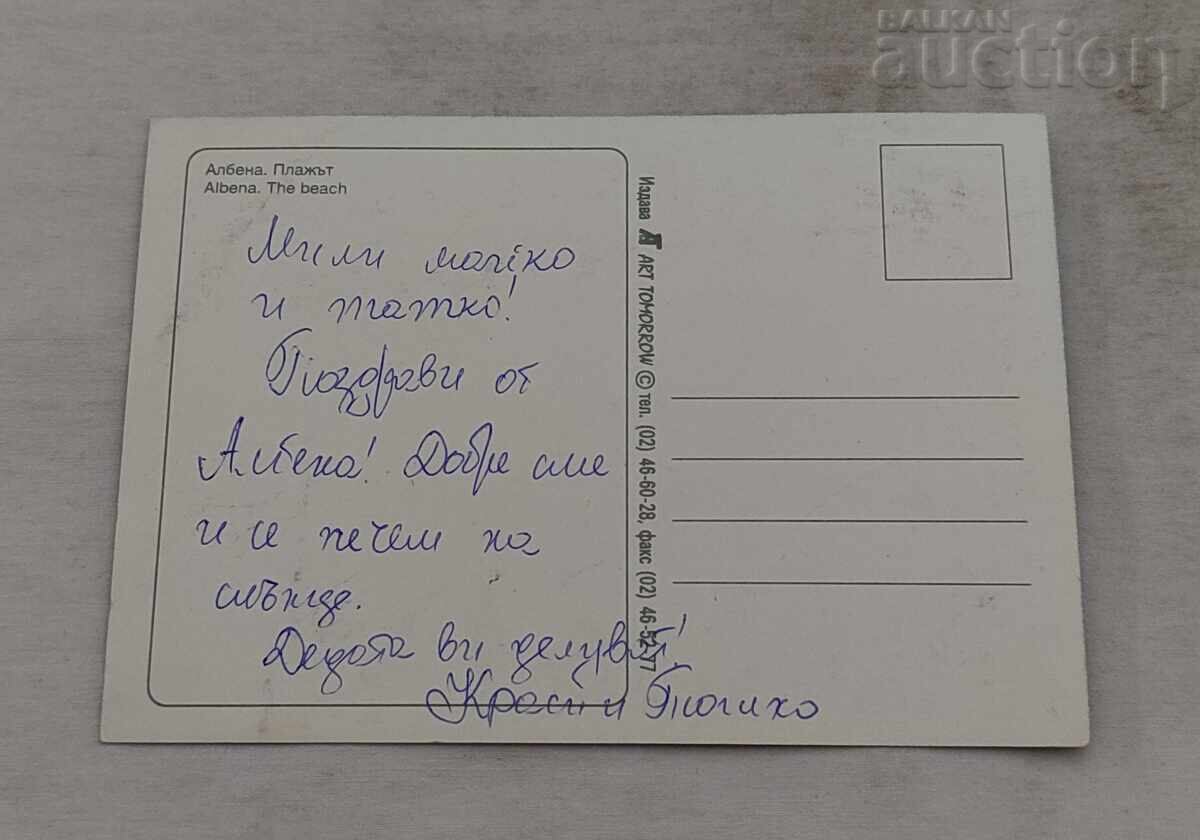 BALKAN
auction
Албена. Плажът
Albena. The beach
Мили майко
и татко!
Поздрави от
Албена! Добре сме
и се печем на
слънце.
Децата ви целуват!
Краси и
Издава ART TOMORROW © тел. (02) 46-60-28, факс (02) 46-52-77